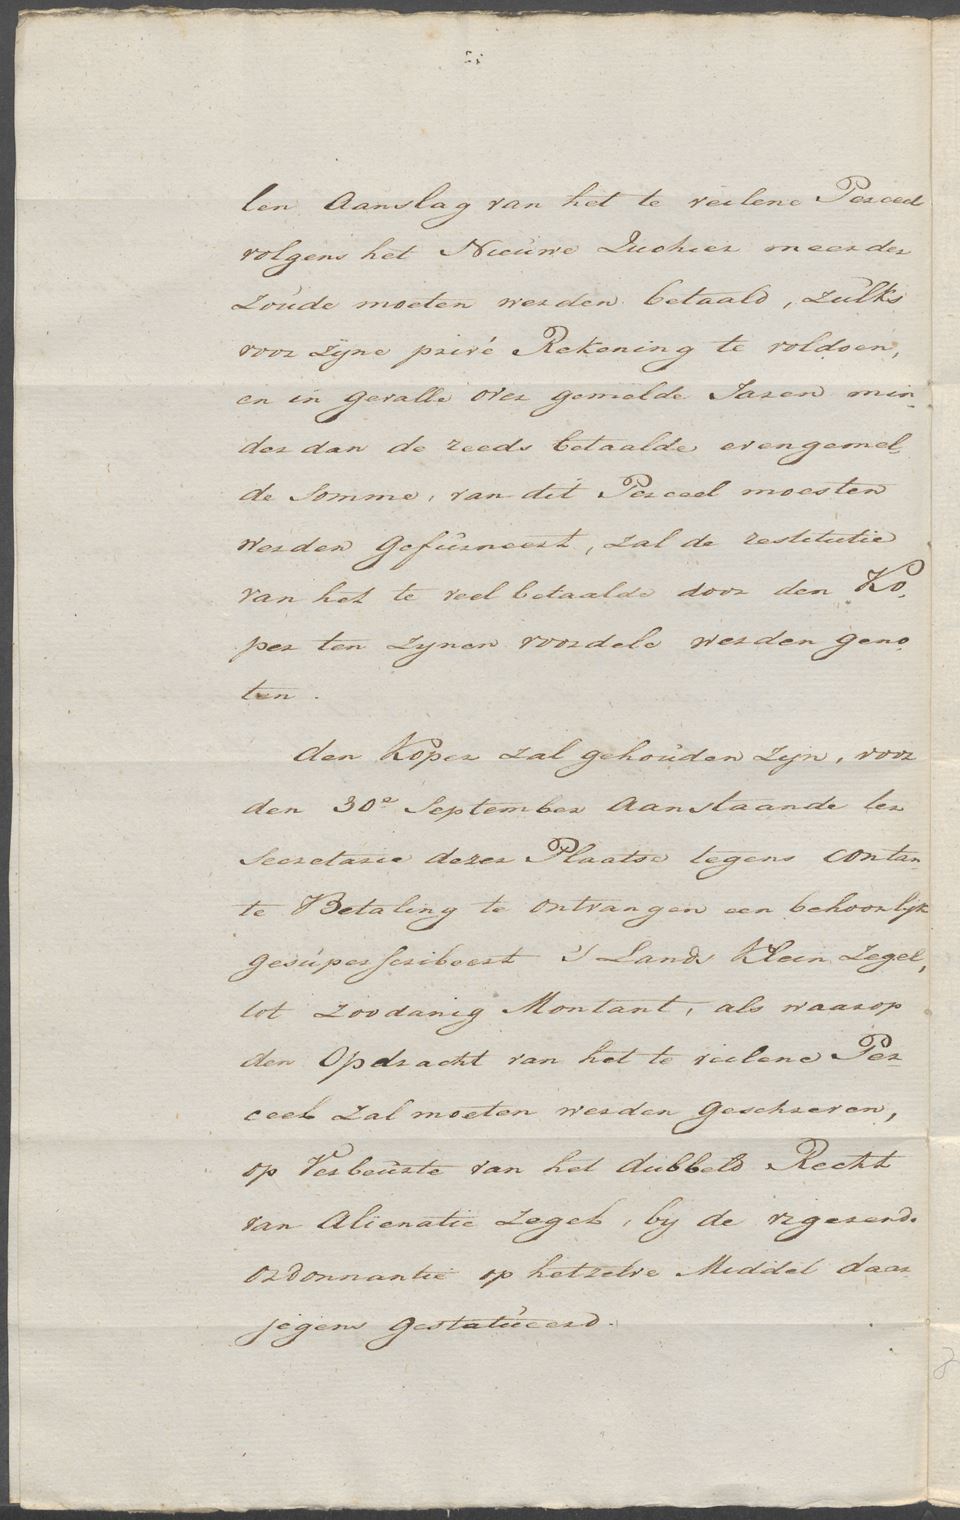 len Aanslag van het te veilene Perceel
volgens het Nieuwe Quohier meerder
zoude moeten werden betaald, zulks
voor zijne privé Rekening te voldoen,
en in gevalle over gemelde Jaren min„
der dan de reeds betaalde evengemel„
de Somme, van dit Perceel moesten
werden gefurneert, zal de restitutie
van het te veel betaalde door den Ko„
per ten zijnen voordele werden geno„
ten.
den Koper zal gehouden zijn, voor
den 30e September aanstaande ter
Secretarie dezer Plaatse tegens contan„
te Betaling te ontvangen een behoorlijk
gesuperscribeert 's Lands Klein Zegel,
tot zoodanig Montant, als waarop
den Opdracht van het te veilene Per„
ceel zal moeten werden geschreven,
op Verbeurte van het dubbeld Recht
van Alienatie Zegel, bij de vigerende
Ordonnantie op hetzelve Middel daar„
jegens gestatueerd.